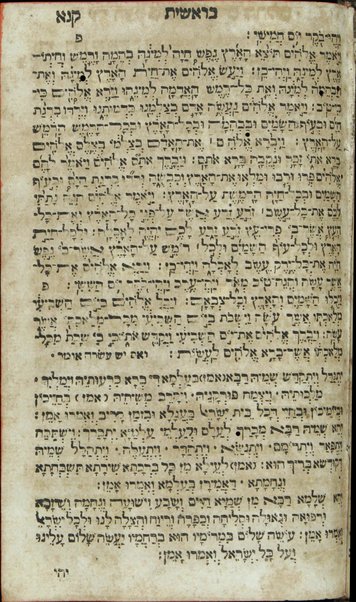 בראשית קנא
ויהי בקר יום חמישי: פ
ויאמר אלהים תוצא הארץ נפש חיה למינה בהמה ורמש וחיתו
ארץ למינה ויהי כן: ויעש אלהים את חית הארץ למינה ואת
הבהמה למינה ואת כל רמש האדמה למינהו וירא אלהים כי
טוב: ויאמר אלהים נעשה אדם בצלמנו כדמותנו וירדו בדגת
הים ובעוף השמים ובבהמה ובכל הארץ ובכל הרמש הרמש
על הארץ: ויברא אלהים את האדם בצלמו בצלם אלהים
ברא אתו זכר ונקבה ברא אתם: ויברך אתם אלהים ויאמר להם
אלהים פרו ורבו ומלאו את הארץ וכבשה ורדו בדגת הים ובעוף
השמים ובכל חיה הרמשת על הארץ: ויאמר אלהים הנה נתתי
לכם את כל עשב זרע זרע אשר על פני כל הארץ ואת כל
העץ אשר בו פרי עץ זרע זרע לכם יהיה לאכלה: ולכל חית
הארץ ולכל עוף השמים ולכל רומש על הארץ אשר בו נפש
חיה את כל ירק עשב לאכלה ויהי כן: וירא אלהים את כל
אשר עשה והנה טוב מאד ויהי ערב ויהי בקר יום הששי: פ
ויכלו השמים והארץ וכל צבאם: ויכל אלהים ביום השביעי
מלאכתו אשר עשה וישבת ביום השביעי מכל מלאכתו אשר
עשה: ויברך אלהים את יום השביעי ויקדש אתו כי בו שבת מכל
מלאכתו אשר ברא אלהים לעשות: ואם יש עשרה אומר
יתגדל ויתקדש שמיה רבא (אמן) בעלמא די ברא כרעותיה וימליך
מלכותיה. ויצמח פורקניה. ויקרב משיחיה (אמן) בחייכון
וביומיכון ובחיי דכל בית ישראל בעגלא ובזמן קריב ואמרו אמן:
יהא שמיה רבא מברך לעלם ולעלמי עלמיא יתברך. וישתבח
ויתפאר ויתרומם. ויתנשא. ויתהדר. ויתעלה. ויתהלל שמיה
דקודשא בריך הוא: (אמן) לעילא מן כל ברכתא שירתא תשבחתא
ונחמתא. דאמירן בעלמא ואמרו אמן:
יהא שלמא רבא מן שמיא חיים ושבע וישועה ונחמה ושיזבא
ורפואה וגאולה וסליחה וכפרה ורויח והצלה לנו ולכל ישראל
ואמרו אמן: עושה שלום במרומיו הוא ברחמיו יעשה שלום עלינו
ועל כל ישראל ואמרו אמן:
יהי